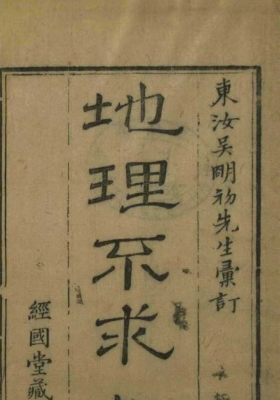 東汝吳明初先生彙訂
地理不求
經國堂藏